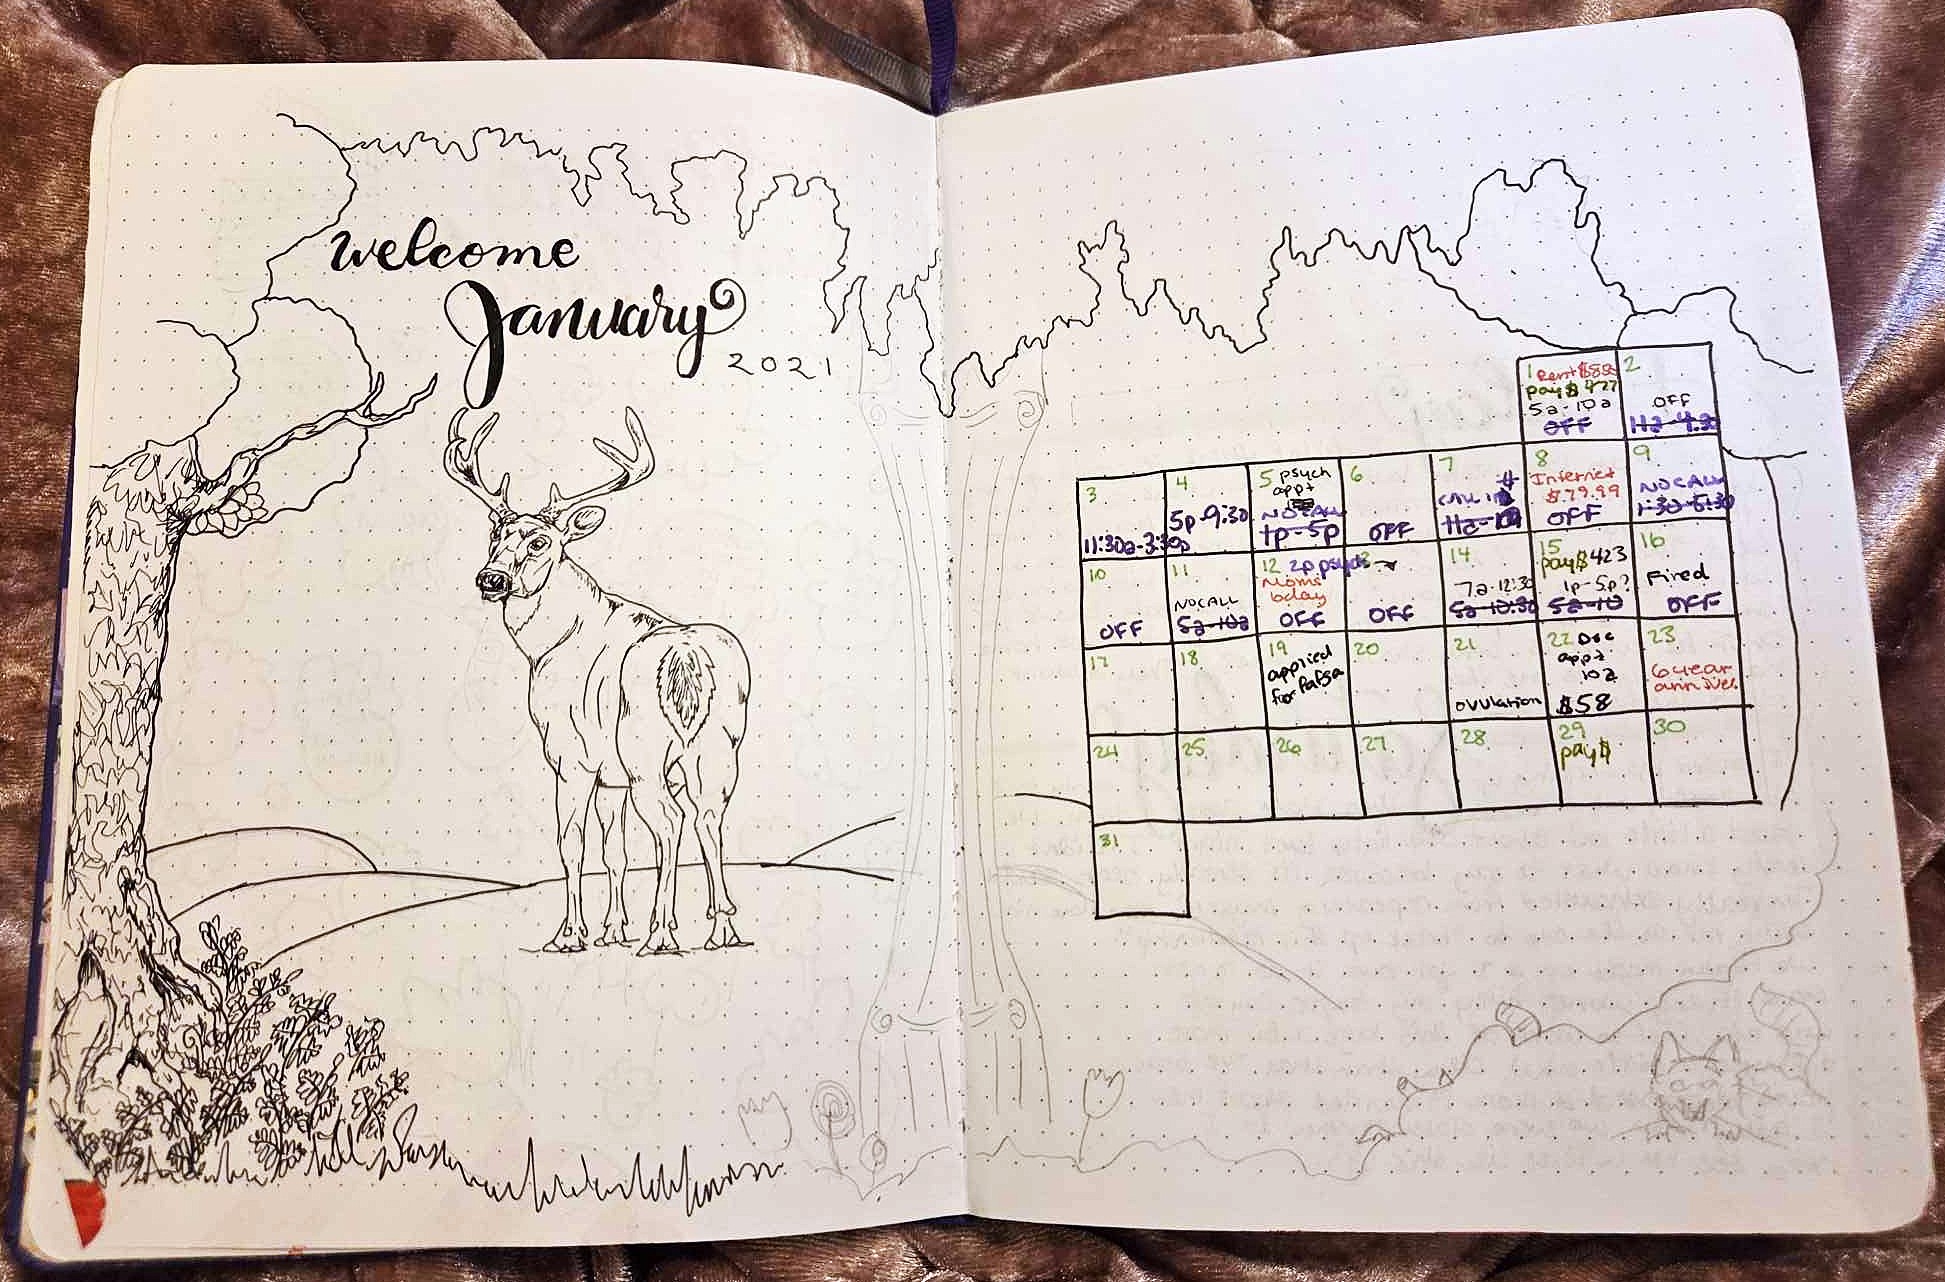 welcome
January
2021
1 Rent $850
pay $ 477
5a-10a
OFF
2
OFF
11a-4:30
3
11:30a-3:30p
4
5p-9:30
5 psych
appt
NO CALL
1p-5p
6
OFF
7
CALL IN
11a-
8
Internet
$79.99
OFF
9
NO CALL
1:30-5:30
10
OFF
11
NOCALL
5a-10a
12 2p psych
Moms
bday
OFF
13
OFF
14
7a-12:30
5a-10:30
15
pay $423
1p-5p?
5a-10
16
Fired
OFF
17
18
19
applied
for Fafsa
20
21
ovulation
22 Doc
appt
10a
$58
23
6 year
anniver.
24
25
26
27
28
29
pay $
30
31